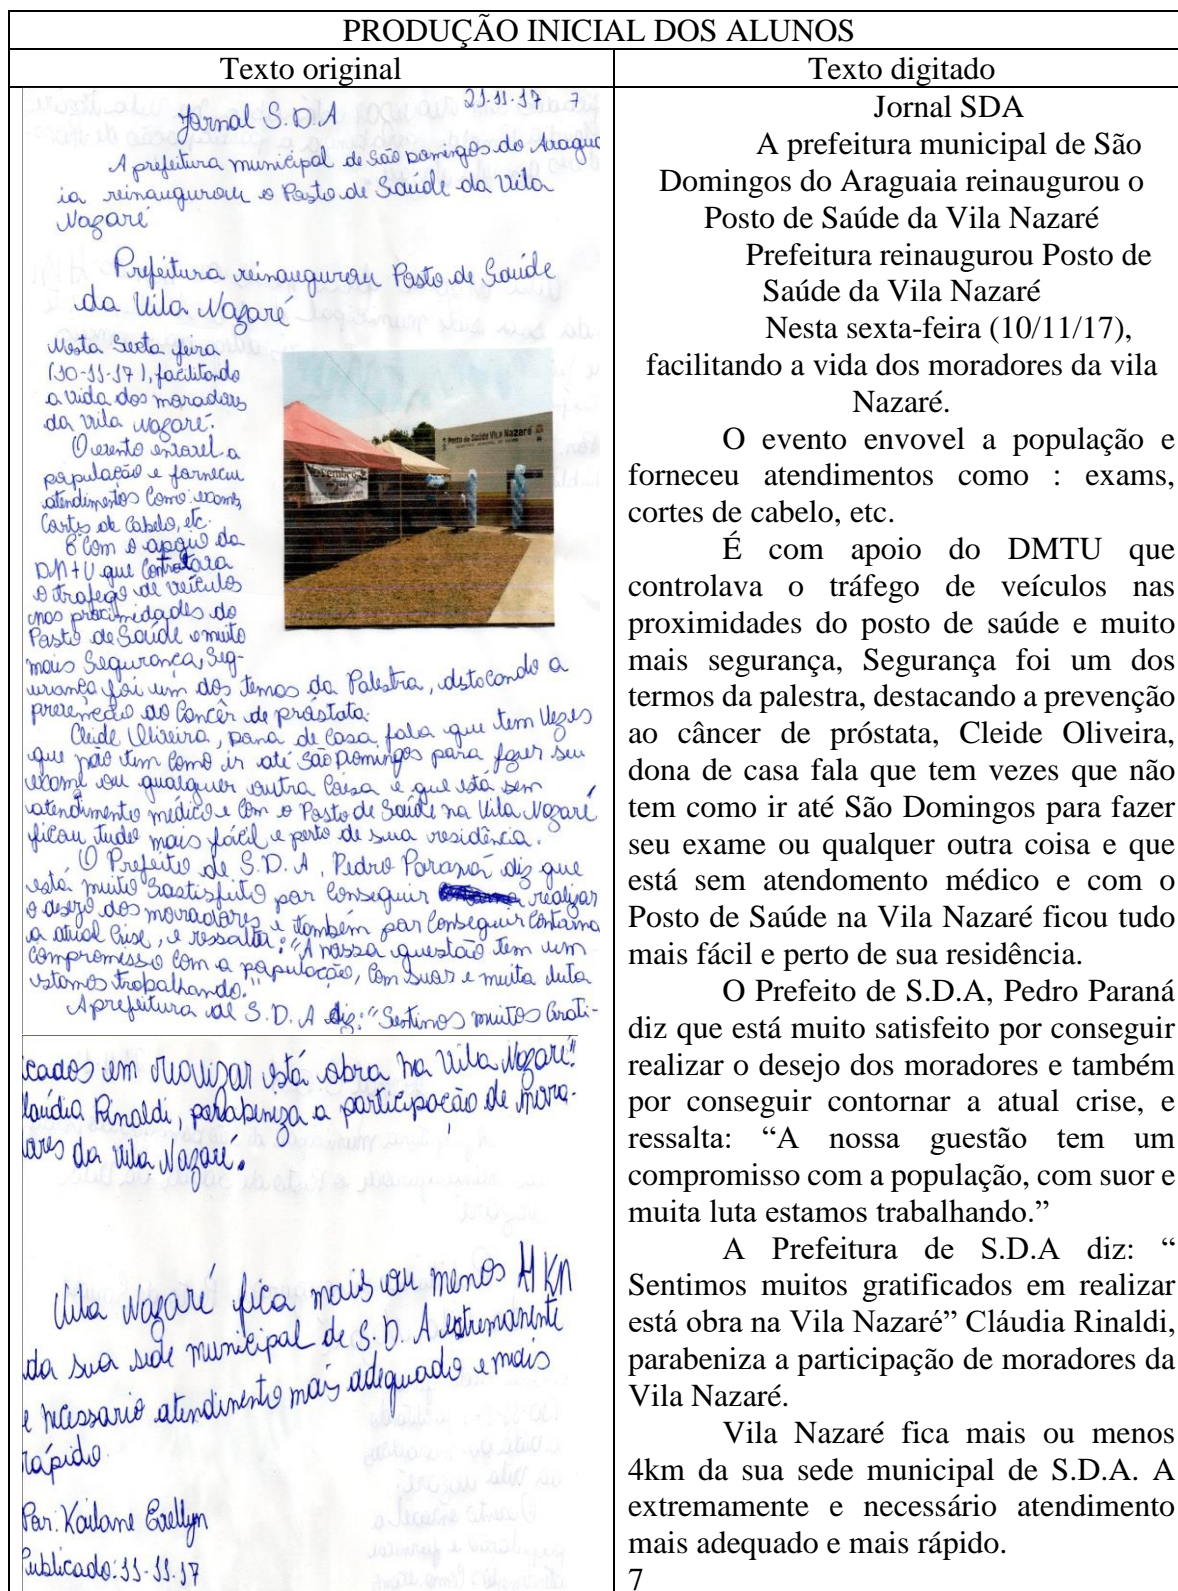 PRODUÇÃO INICIAL DOS ALUNOS
Texto original
Texto digitado
21-11-17 7
Jornal S.D.A
A prefeitura municipal de São Domingos do Aragua
ia reinaugurou o Posto de Saúde da Vila
Nazaré
Prefeitura reinaugurou Posto de Saúde
da Vila Nazaré
Nesta Sexta feira
(10-11-17), facilitando
a vida dos moradores
da vila nazaré.
O evento envovel a
população e forneceu
atendimentos Como: exams,
Cortes de Cabelo, etc.
É Com o apoio da
DMTU que Controlava
o trafego de veículos
nas proximidades do
Posto de Saúde e muito
mais Segurança, Seg-
urança foi um dos temas da Palestra, destacando a
prevenção ao Cancêr de próstata.
Cleide Oliveira, dona de Casa, fala que tem Vezes
que não tem Como ir até São Domingos para fazer seu
exame ou qualquer outra Coisa e que está sem
atendimento médico e Com o Posto de Saúde na Vila Nazaré
ficou tudo mais fácil e perto de sua residência.
O Prefeito de S.D.A, Pedro Paraná diz que
está muito Sastisfeito por Conseguir realizar
o desejo dos moradores e também por Conseguir Contorna
a atual Crise, e ressalta: "A nossa questão tem um
Compromisso Com a população, Com suor e muita luta
estamos trabalhando."
A prefeitura de S.D.A diz: "Sentimos muitos Grati-
icados em realizar está obra na Vila Nazaré"
laudia Rinaldi, parabeniza a participação de mora-
ores da vila Nazaré.
Posto de Saúde Vila Nazaré
Vila Nazaré fica mais ou menos 4 KM
da sua sede municipal de S.D.A extremamente
e necessario atendimento mais adequado e mais
rápido.
Por: Kailane Evellyn
Publicado: 11-11-17
Jornal SDA
A prefeitura municipal de São
Domingos do Araguaia reinaugurou o
Posto de Saúde da Vila Nazaré
Prefeitura reinaugurou Posto de
Saúde da Vila Nazaré
Nesta sexta-feira (10/11/17),
facilitando a vida dos moradores da vila
Nazaré.
O evento envovel a população e
forneceu atendimentos como : exams,
cortes de cabelo, etc.
É com apoio do DMTU que
controlava o tráfego de veículos nas
proximidades do posto de saúde e muito
mais segurança, Segurança foi um dos
termos da palestra, destacando a prevenção
ao câncer de próstata, Cleide Oliveira,
dona de casa fala que tem vezes que não
tem como ir até São Domingos para fazer
seu exame ou qualquer outra coisa e que
está sem atendomento médico e com o
Posto de Saúde na Vila Nazaré ficou tudo
mais fácil e perto de sua residência.
O Prefeito de S.D.A, Pedro Paraná
diz que está muito satisfeito por conseguir
realizar o desejo dos moradores e também
por conseguir contornar a atual crise, e
ressalta: “A nossa guestão tem um
compromisso com a população, com suor e
muita luta estamos trabalhando.”
A Prefeitura de S.D.A diz: “
Sentimos muitos gratificados em realizar
está obra na Vila Nazaré” Cláudia Rinaldi,
parabeniza a participação de moradores da
Vila Nazaré.
Vila Nazaré fica mais ou menos
4km da sua sede municipal de S.D.A. A
extremamente e necessário atendimento
mais adequado e mais rápido.
7